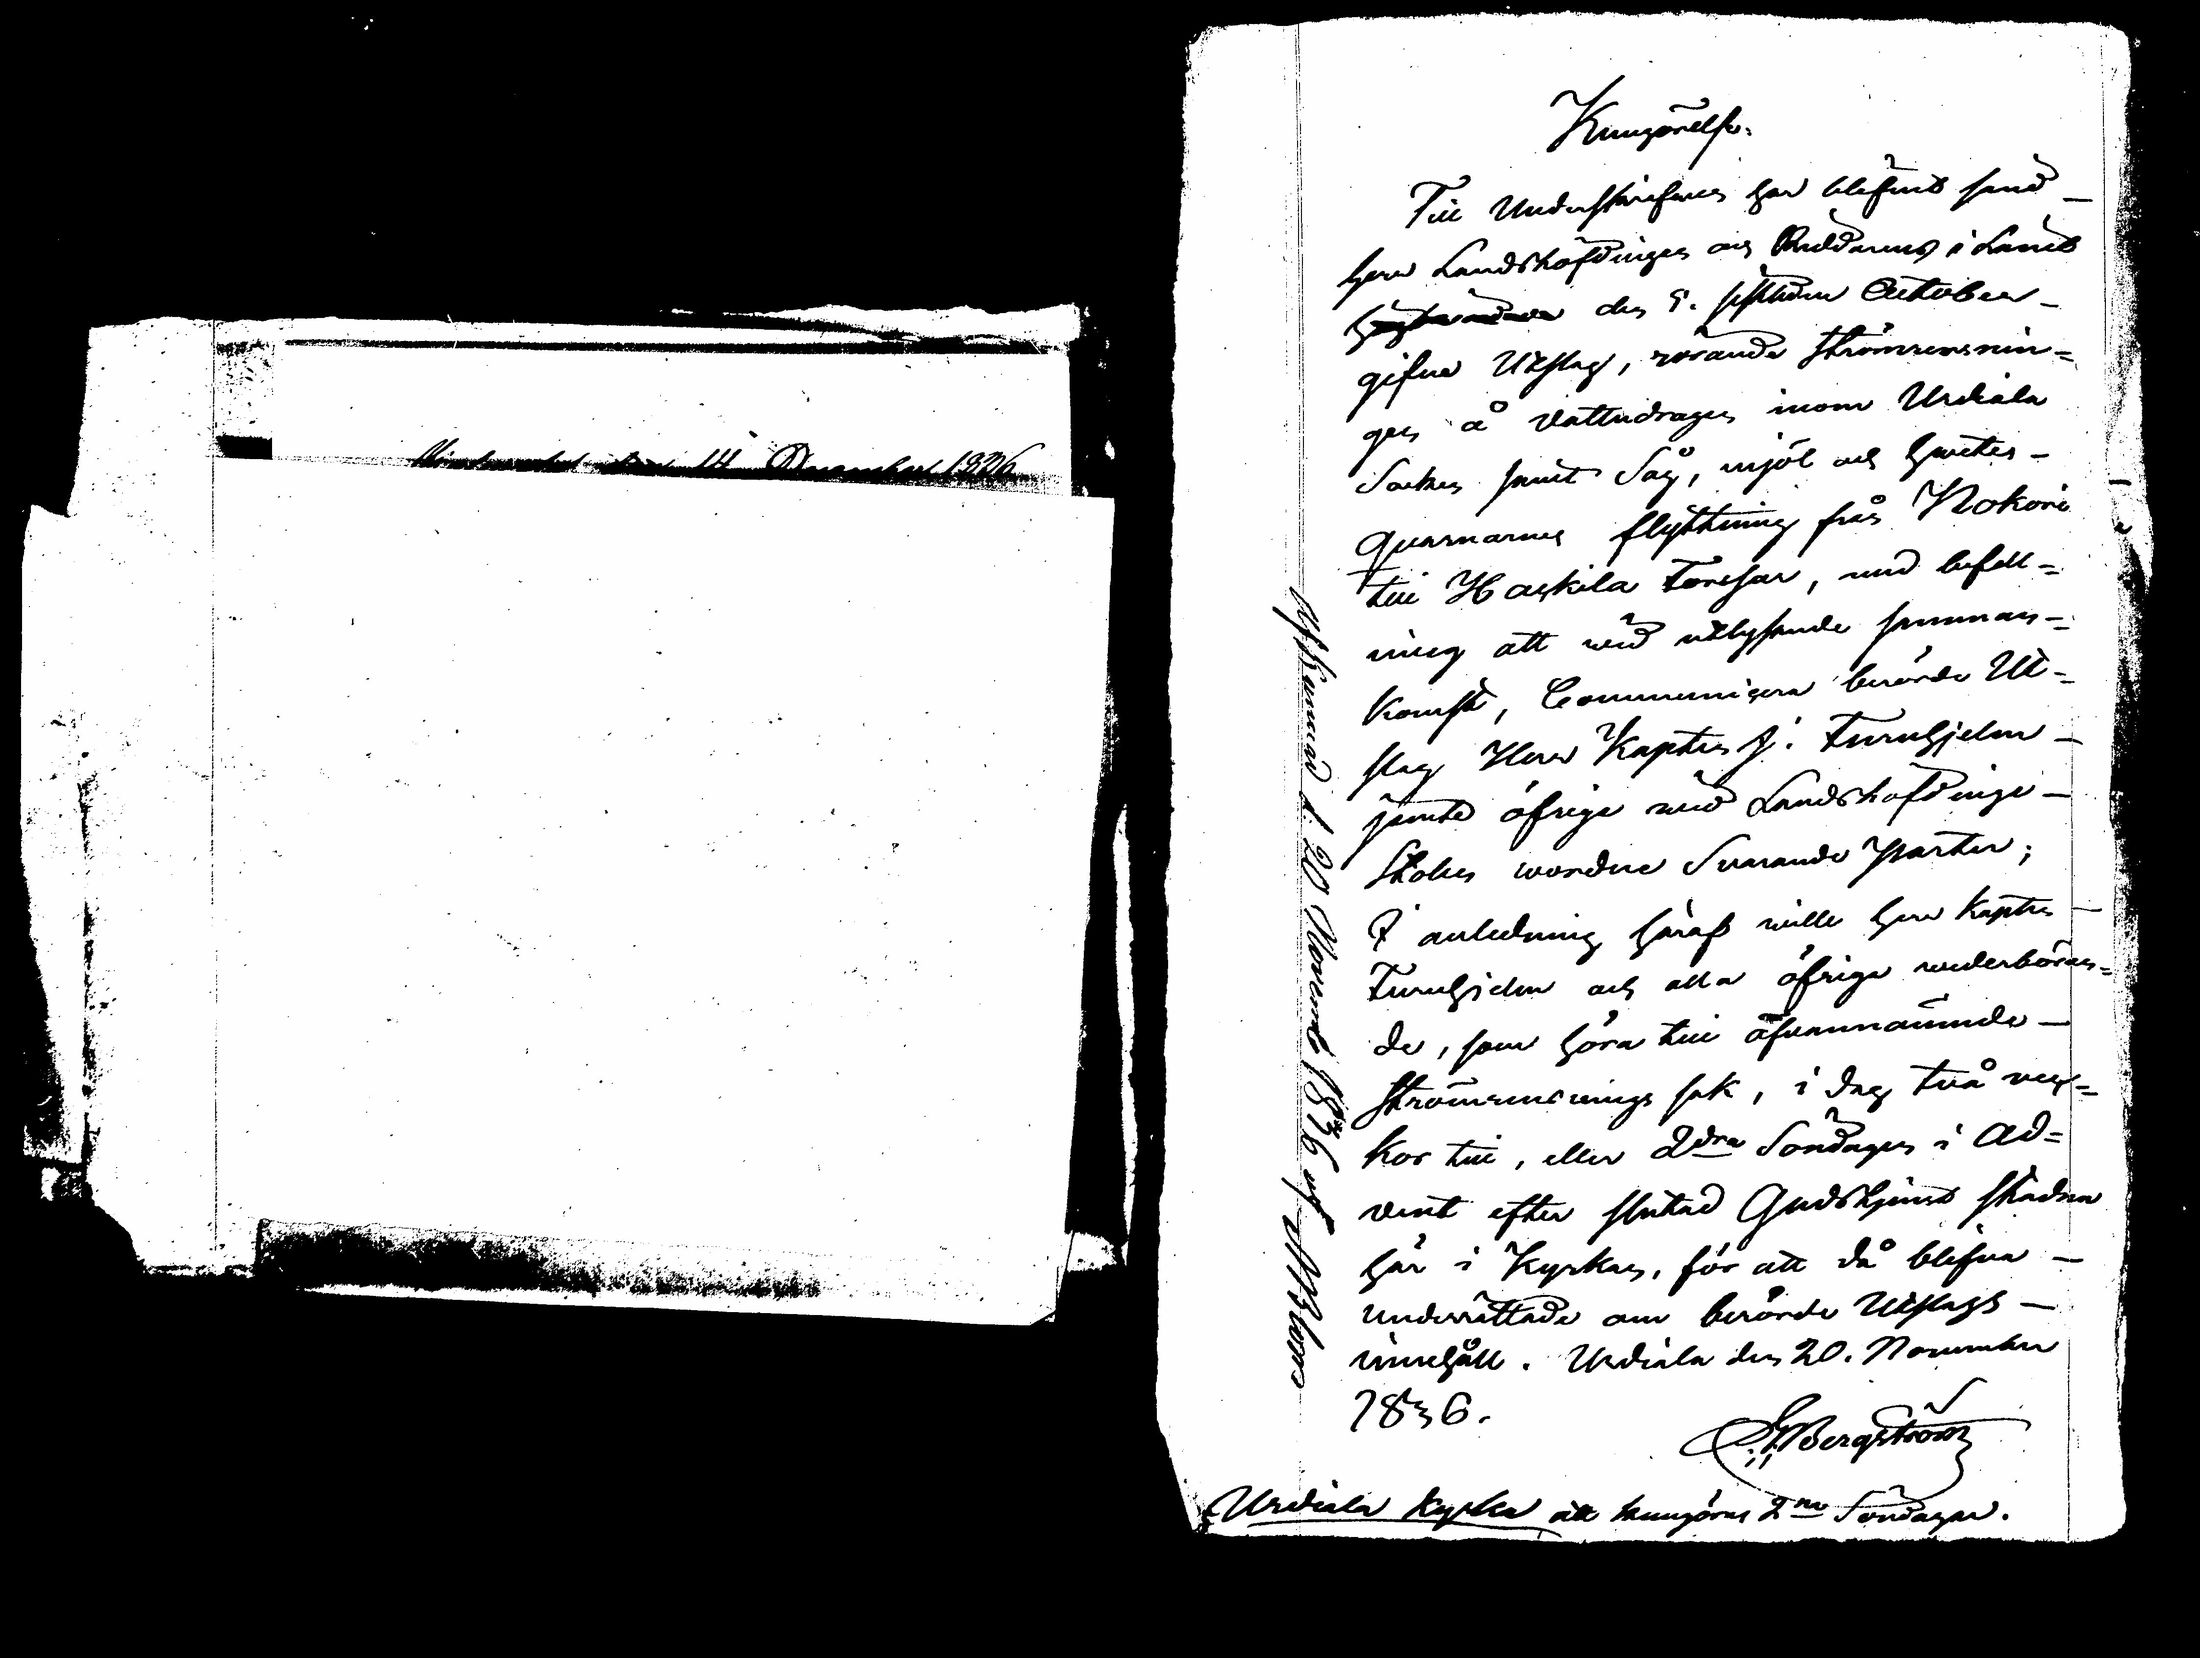 den 14 December 1836
Kungörelse.
Till Underskrifven har blifvit sänd
Herr Landshöfdingen och Riddarens i Länet
den 5. sistledne October
gifne Utslag, rörande strömrensnin=
gen å Vattudragen inom Urdiala
Socken samt Såg, mjöl och Hvetes-
Quarnarnes flyttning från Nokori
till Haskila Forssar, med befall=
ning att wid utlysande samman=
komst, Communicera berörde Ut=
slag Herr Kapten J. Furuhjelm
jemte öfrige wid Landshöfdinge
wordne Svarande Parter;
I anledning häraf wille Herr Kapten
Furuhjelm och alla öfrige wederböran=
de, som höra till ofvannämnde
Strömrensnings sak, i dag två vec=
kor till, eller 2dra Söndagen i Ad=
vent efter slutad Gudstjenst stadna
här i Kyrkan, för att då blifva
underrättade om berörde Utslags
innehåll. Urdiala den 20. November
1836.
Bergström
Urdiala Kyrka att kungöras 2ne Söndagar.
d. 20 Novemb 1836 af